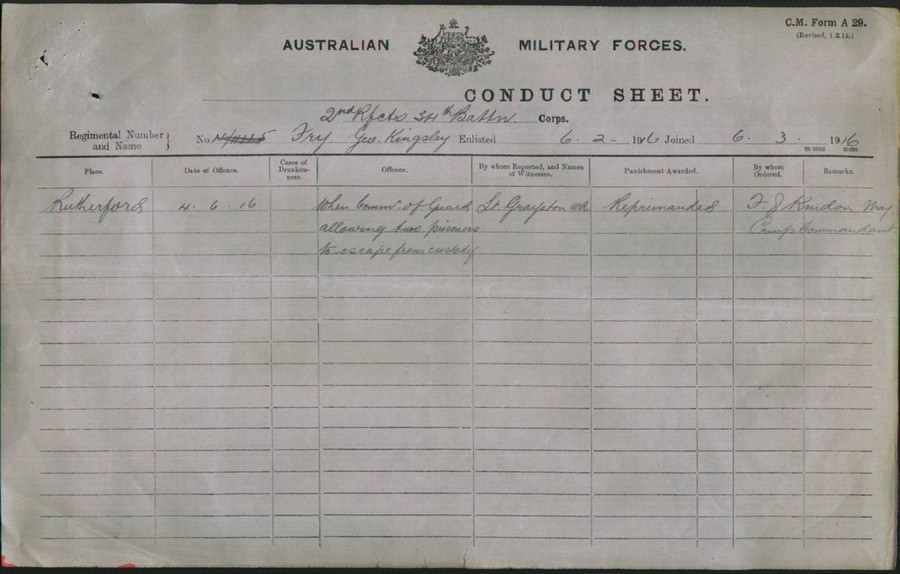 C.M. Form A 29.
(Revised, 1.2.15.)
AUSTRALIAN MILITARY FORCES.
CONDUCT SHEET.
2nd Rfcts 34th Battn Corps.
Regimental Number and Name } No. Fry Geo. Kingsley Enlisted 6 - 2 - 1916 Joined 6. 3. 1916
Place. Date of Offence. Cases of Drunkenness. Offence. By whom Reported, and Names of Witnesses. Punishment Awarded. By whom Ordered. Remarks.
Rutherford 4. 6. 16 When Comm. of Guard Lt. Reprimanded F. J. Maj
allowing two prisoners Camp Commandant
to escape from custody